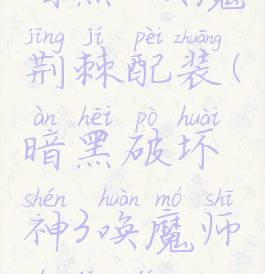 jīng jí pèi zhuāng
荆棘配装(
àn hēi pò huài
暗黑破坏
shén huàn mó shī
神3唤魔师